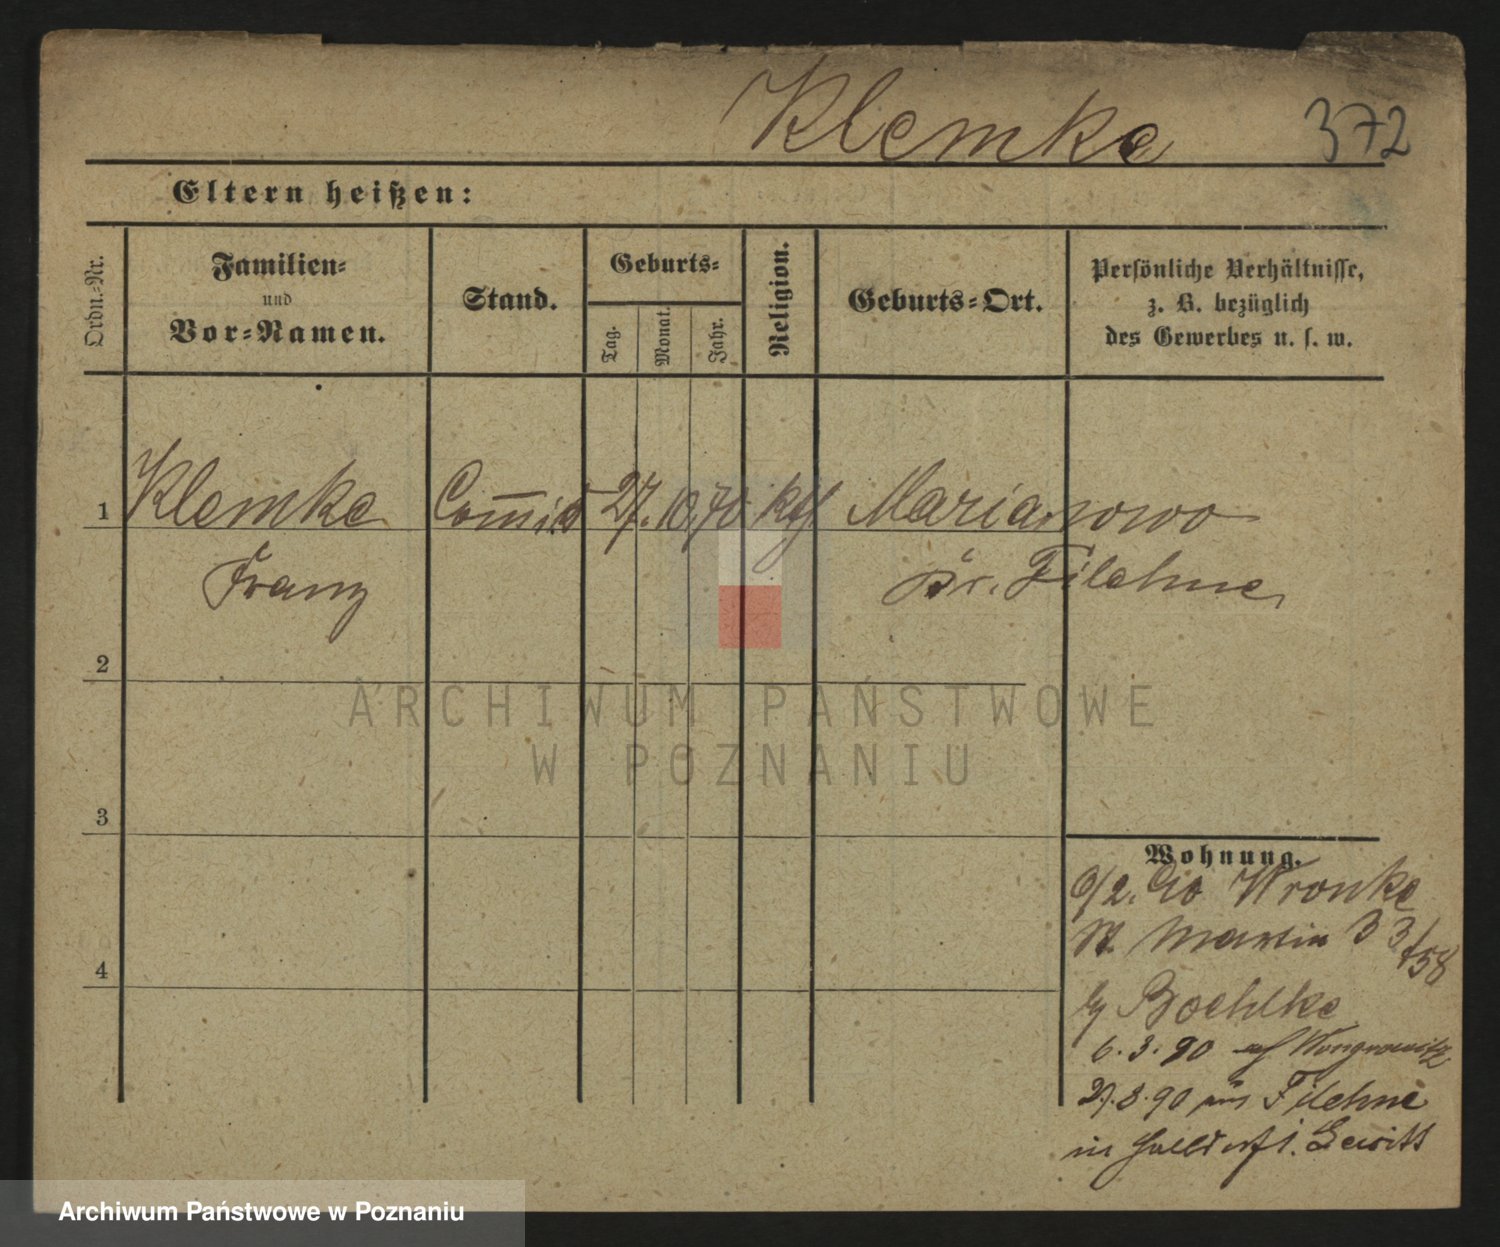 Klemke 372
Eltern heißen:
Ordn.-Nr.
Familien-
und
Vor-Namen.
Stand.
Geburts-
Tag.
Monat.
Jahr.
Religion.
Geburts-Ort.
Persönliche Verhältnisse,
z. B. bezüglich
des Gewerbes u. s. w.
1 Klemke Com̅is 27. 10. 70 kth Marianowo
Franz Kr. Filehne
2
3
4
ARCHIWUM PAŃSTWOWE
W POZNANIU
Wohnung.
6/2. 90 Wronke
St. Martin 33/58
by Boehlke
6. 3. 90 auf Wongrowitz
29. 8. 90 aus Filehne
in
Archiwum Państwowe w Poznaniu